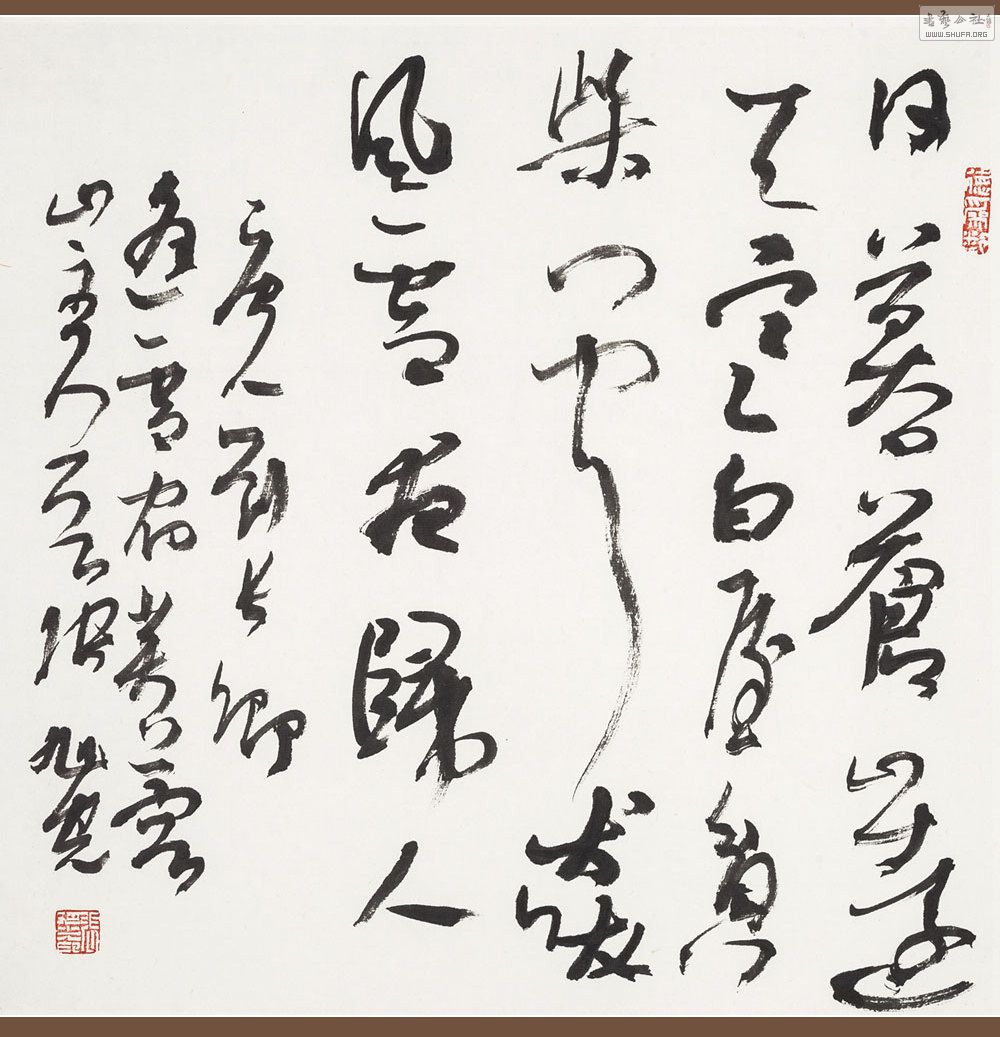 书艺公社
WWW.SHUFA.ORG
日暮蒼山遠
天寒白屋貧
柴門聞犬吠
風雪夜歸人
唐人劉長卿
逢雪宿芙蓉
山主人 張旭光